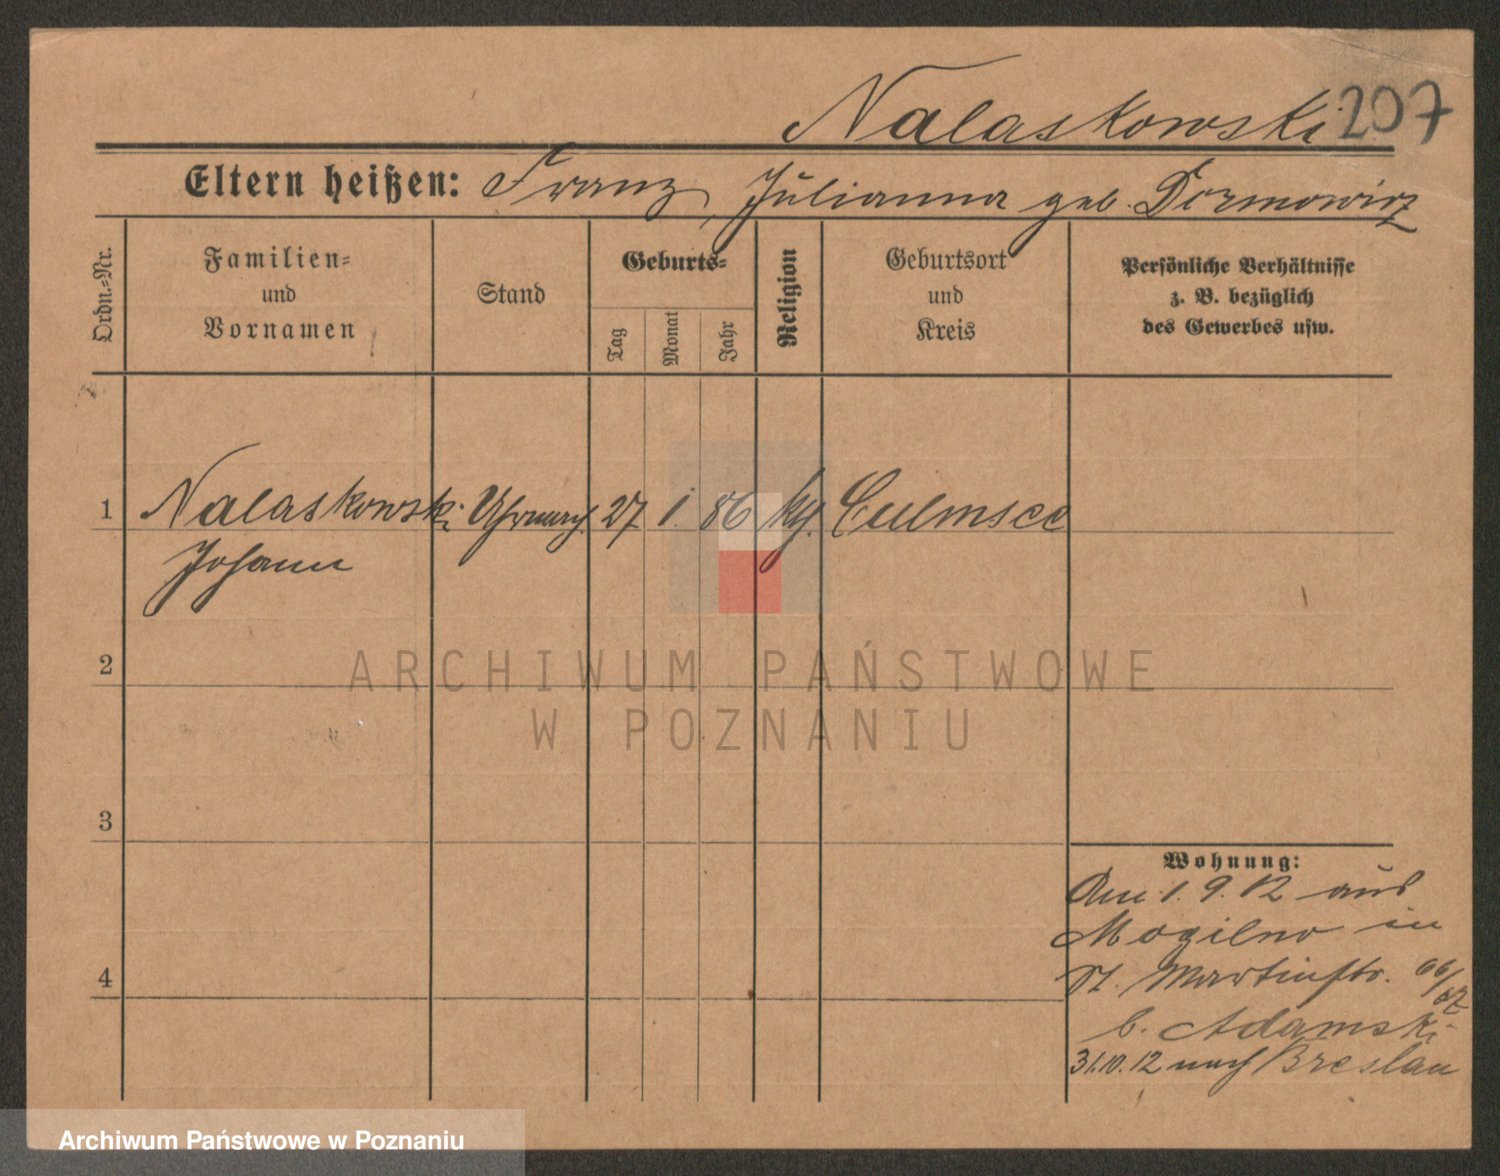 Nalaskowski 207
Eltern heißen: Franz, Julianna geb. Dormowicz
Ordn.-Nr.
Familien-
und
Vornamen
Stand
Geburts-
Tag
Monat
Jahr
Religion
Geburtsort
und
Kreis
Persönliche Verhältnisse
z. B. bezüglich
des Gewerbes usw.
1 Nalaskowski Uhrmach. 27 1. 86 Culmsee
Johann
2
3
4
Wohnung:
Am 1. 9. 12 aus
Mogilno in
St. Martinstr. 66/67
b. Adamski
31.10.12 nach Breslau
ARCHIWUM PAŃSTWOWE
W POZNANIU
Archiwum Państwowe w Poznaniu